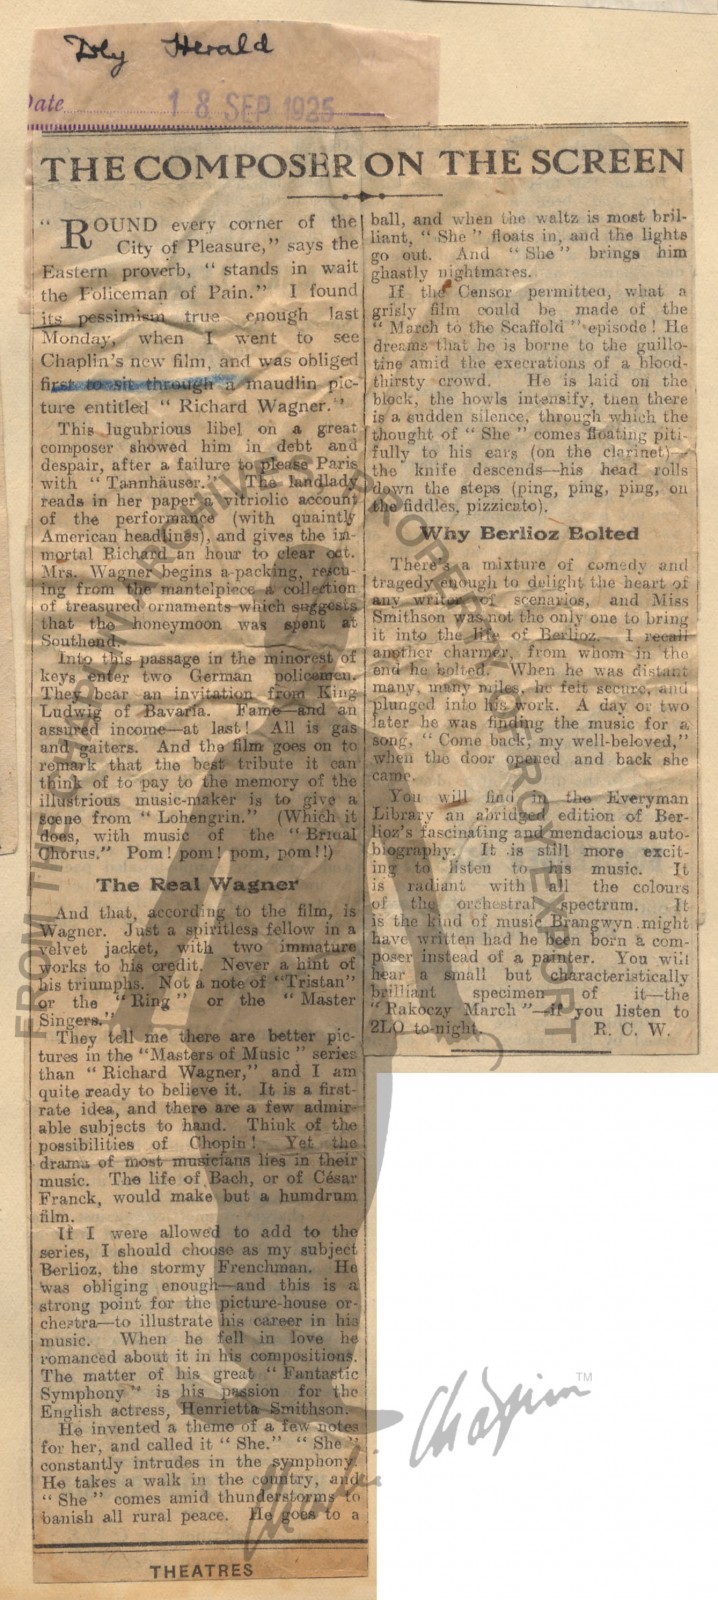 Dly Herald
Date
18 SEP 1925
THE COMPOSER ON THE SCREEN
"ROUND every corner of the
City of Pleasure," says the
Eastern proverb, "stands in wait
the Policeman of Pain." I found
its pessimism true enough last
Monday, when I went to see
Chaplin's new film, and was obliged
first to sit through a maudlin pic-
ture entitled "Richard Wagner."
This lugubrious libel on a great
composer showed him in debt and
despair, after a failure to please Paris
with "Tannhäuser." The landlady
reads in her paper a vitriolic account
of the performance (with quaintly
American headlines), and gives the im-
mortal Richard an hour to clear out.
Mrs. Wagner begins a-packing, rescu-
ing from the mantelpiece a collection
of treasured ornaments which suggests
that the honeymoon was spent at
Southend.
Into this passage in the minorest of
keys enter two German policemen.
They bear an invitation from King
Ludwig of Bavaria. Fame—and an
assured income—at last! All is gas
and gaiters. And the film goes on to
remark that the best tribute it can
think of to pay to the memory of the
illustrious music-maker is to give a
scene from "Lohengrin." (Which it
does, with music of the "Bridal
Chorus." Pom! pom! pom, pom!!)
The Real Wagner
And that, according to the film, is
Wagner. Just a spiritless fellow in a
velvet jacket, with two immature
works to his credit. Never a hint of
his triumphs. Not a note of "Tristan"
or the "Ring" or the "Master
Singers."
They tell me there are better pic-
tures in the "Masters of Music" series
than "Richard Wagner," and I am
quite ready to believe it. It is a first-
rate idea, and there are a few admir-
able subjects to hand. Think of the
possibilities of Chopin! Yet the
drama of most musicians lies in their
music. The life of Bach, or of César
Franck, would make but a humdrum
film.
If I were allowed to add to the
series, I should choose as my subject
Berlioz, the stormy Frenchman. He
was obliging enough—and this is a
strong point for the picture-house or-
chestra—to illustrate his career in his
music. When he fell in love he
romanced about it in his compositions.
The matter of his great "Fantastic
Symphony" is his passion for the
English actress, Henrietta Smithson.
He invented a theme of a few notes
for her, and called it "She." "She"
constantly intrudes in the symphony.
He takes a walk in the country, and
"She" comes amid thunderstorms to
banish all rural peace. He goes to a
THEATRES
ball, and when the waltz is most bril-
liant, "She" floats in, and the lights
go out. And "She" brings him
ghastly nightmares.
If the Censor permitted, what a
grisly film could be made of the
"March to the Scaffold" episode! He
dreams that he is borne to the guillo-
tine amid the execrations of a blood-
thirsty crowd. He is laid on the
block, the howls intensify, then there
is a sudden silence, through which the
thought of "She" comes floating piti-
fully to his ears (on the clarinet)—
the knife descends—his head rolls
down the steps (ping, ping, ping, on
the fiddles, pizzicato).
Why Berlioz Bolted
There's a mixture of comedy and
tragedy enough to delight the heart of
any writer of scenarios, and Miss
Smithson was not the only one to bring
it into the life of Berlioz. I recall
another charmer, from whom in the
end he bolted. When he was distant
many, many miles, he felt secure, and
plunged into his work. A day or two
later he was finding the music for a
song, "Come back, my well-beloved,"
when the door opened and back she
came.
You will find in the Everyman
Library an abridged edition of Ber-
lioz's fascinating and mendacious auto-
biography. It is still more excit-
ing to listen to his music. It
is radiant with all the colours
of the orchestral spectrum. It
is the kind of music Brangwyn might
have written had he been born a com-
poser instead of a painter. You will
hear a small but characteristically
brilliant specimen of it—the
"Rakoczy March"—if you listen to
2LO to-night. R. C. W.
Charlie Chaplin TM